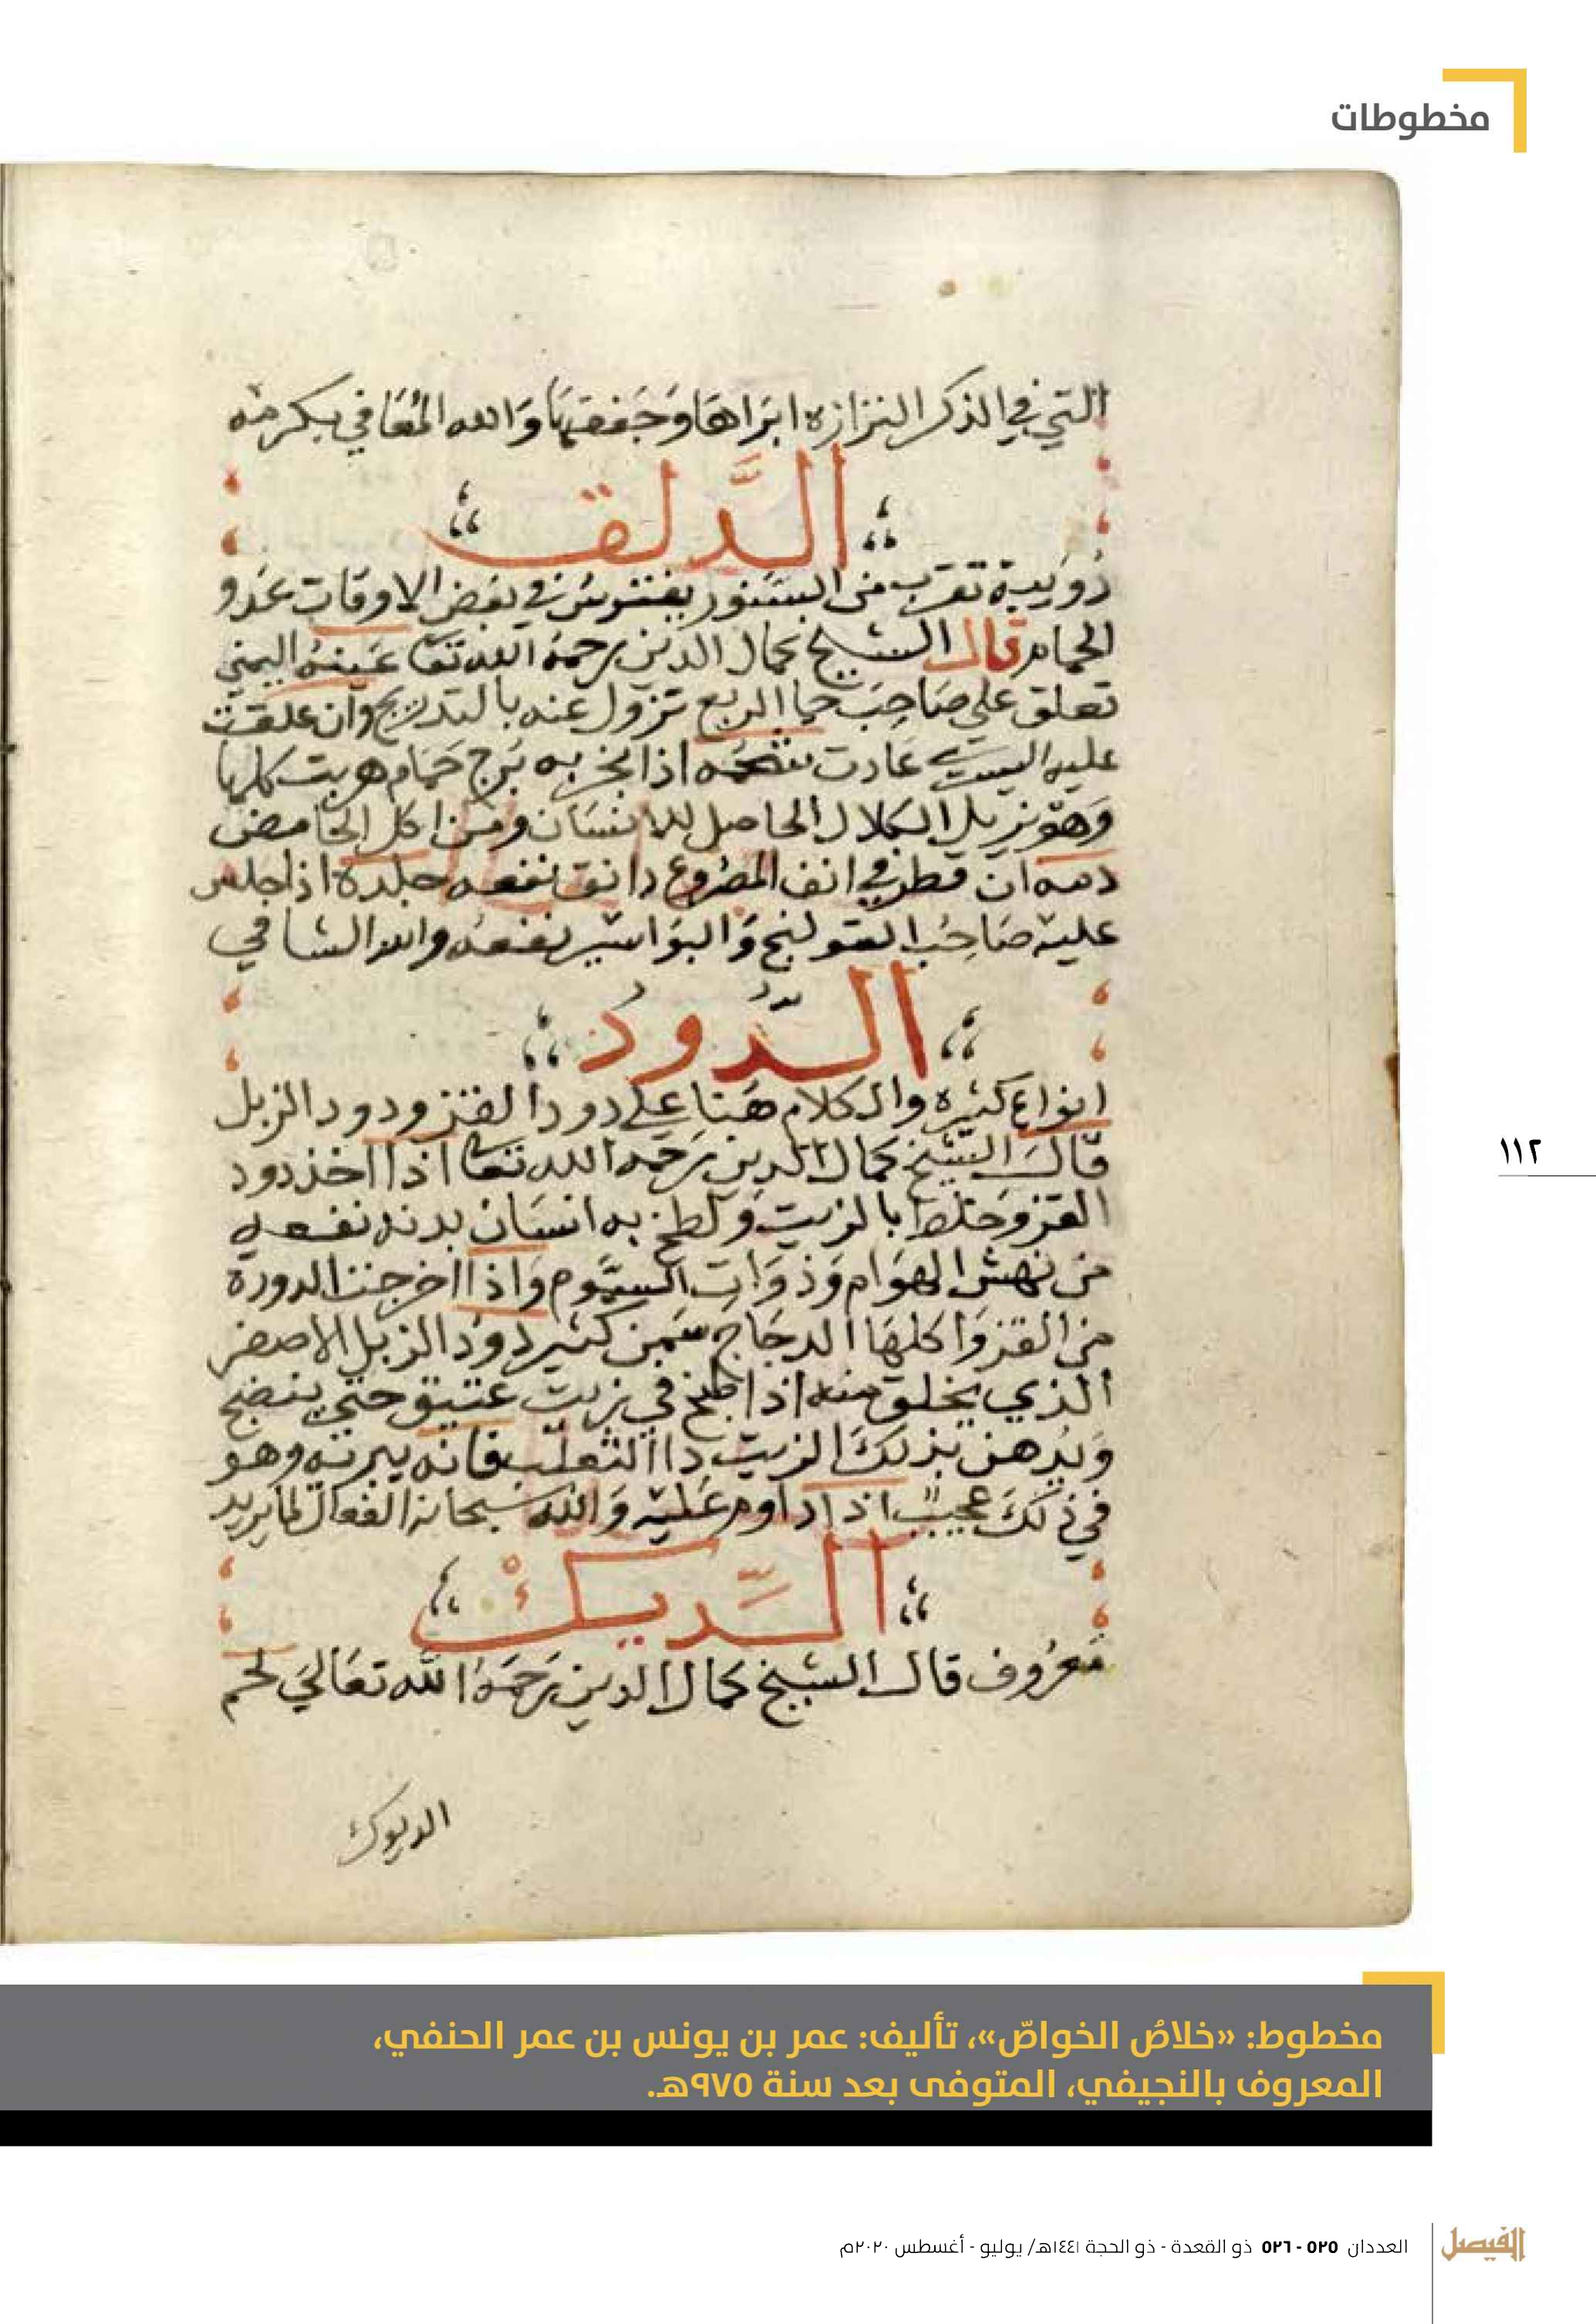 مخطوطات
التي في الذكر النزازه ابراها وجففها والله المعافي بكرمه
الدلق
دويبة تقرب من السنور يفترس في بعض الاوقات عدو
الحمام قال الشيخ كمال الدين رحمه الله تعا عينه اليمني
تعلق على صاحب حما الربع تزول عنه بالتدريج وان علقت
عليه اليسرى عادت شحمه اذا بخر به برج حمام هربت كلها
وهو يزيل الكلال الحاصل للانسان ومن اكل الحامض
دمه ان قطر في انف المصروع دانق نفعه جلده اذا جلس
عليه صاحب القولنج والبواسير نفعه والله الشافي
الدود
انواع كثيره والكلام هنا على دود القز ودود الزبل
قال الشيخ كمال الدين رحمه الله تعا اذا اخذ دود
القز وخلط بالزيت ولطخ به انسان بدنه نفعه
من نهش الهوام وذوات السموم واذا اخرجت الدودة
من القز واكلها الدجاج سمن كثير دود الزبل الاصفر
الذي يخلق منه اذا طبخ في زيت عتيق حتي ينضج
ويدهن بذلك الزيت داا الثعلب فانه يبريه وهو
في ذلك عجيب اذا داوم عليه والله سبحانه الفعال لما يريد
الديك
معروف قال الشيخ كمال الدين رحمه الله تعالي لحم
الديوك
١١٢
مخطوط: «خلاصُ الخواصّ»، تأليف: عمر بن يونس بن عمر الحنفي،
المعروف بالنجيفي، المتوفى بعد سنة ٩٧٥هـ.
الفيصل العددان ٥٢٥ - ٥٢٦ ذو القعدة - ذو الحجة ١٤٤١هـ/ يوليو - أغسطس ٢٠٢٠م